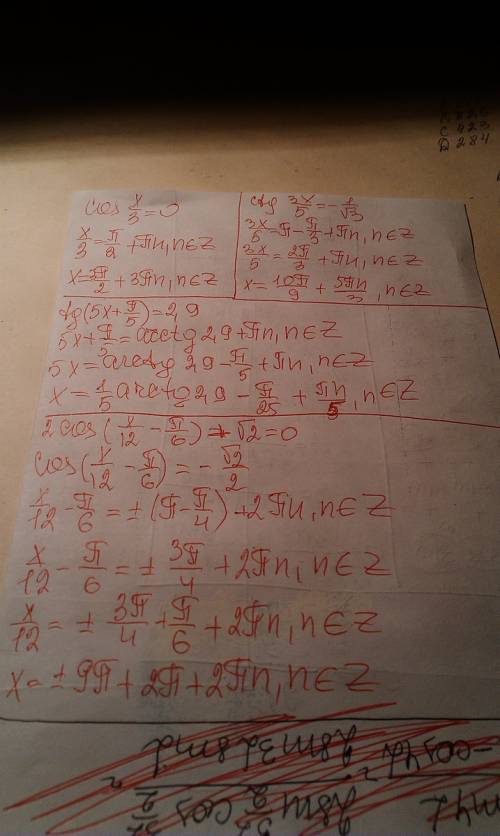 C 423
D 284
cos x/3 = 0
x/3 = π/2 + πn, n∈Z
x = 3π/2 + 3πn, n∈Z
ctg 3x/5 = -1/√3
3x/5 = π - π/3 + πn, n∈Z
3x/5 = 2π/3 + πn, n∈Z
x = 10π/9 + 5πn/3, n∈Z
tg(5x + π/5) = 2,9
5x + π/5 = arctg 2,9 + πn, n∈Z
5x = arctg 2,9 - π/5 + πn, n∈Z
x = 1/5 arctg 2,9 - π/25 + πn/5, n∈Z
2cos(x/12 - π/6) + √2 = 0
cos(x/12 - π/6) = -√2/2
x/12 - π/6 = ±(π - π/4) + 2πn, n∈Z
x/12 - π/6 = ± 3π/4 + 2πn, n∈Z
x/12 = ± 3π/4 + π/6 + 2πn, n∈Z
x = ±9π + 2π + 2πn, n∈Z